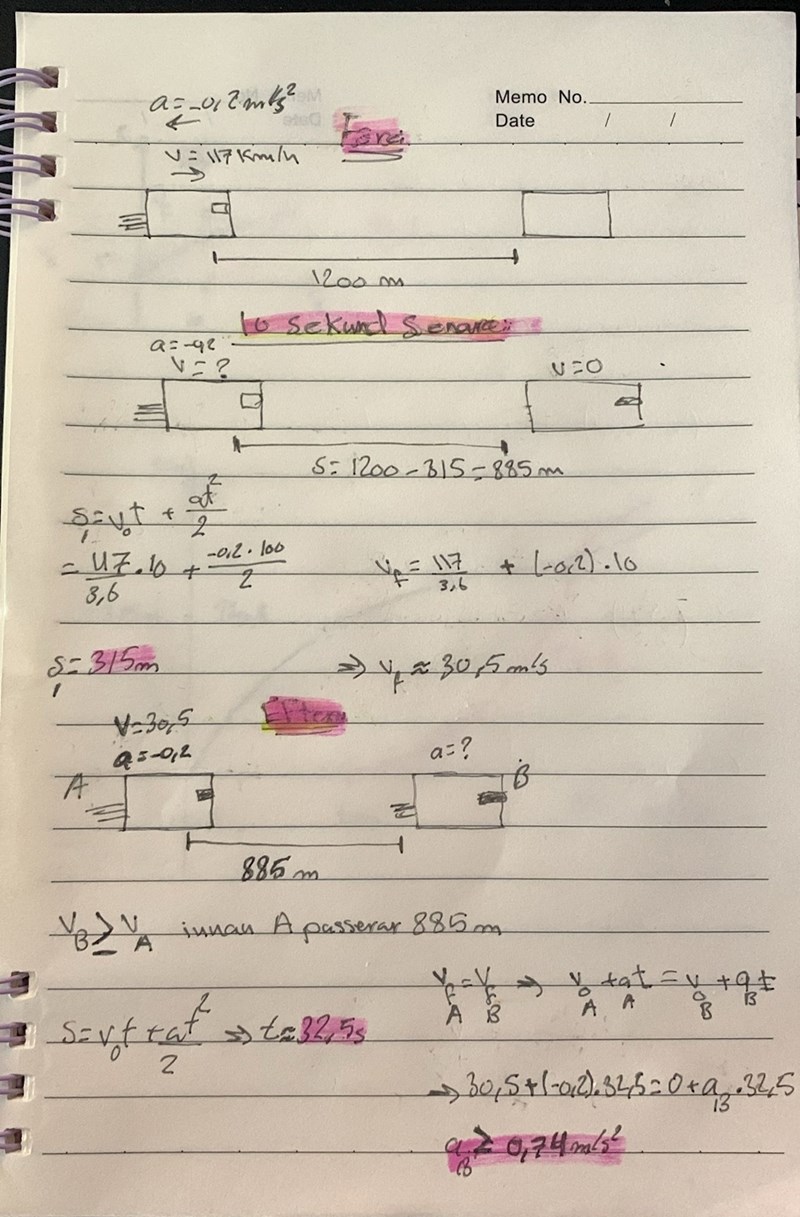 a = -0,2 m/s²
Memo No.
Date / /
Före:
v = 117 km/h
1200 m
10 sekund senare:
a = -0,2
v = ?
v = 0
S = 1200 - 315 = 885 m
s₁ = v₀t + at²/2
= 117/3,6 · 10 + -0,2 · 100/2
v_f = 117/3,6 + (-0,2) · 10
s₁ = 315m
⇒ v_f ≈ 30,5 m/s
V = 30,5
Efter:
a = -0,2
a = ?
A
B
885 m
V_B ≥ V_A innan A passerar 885 m
V_fA = V_fB ⇒ v_0A + a_A t = v_0B + a_B t
S = v₀t + at²/2 ⇒ t ≈ 32,5s
⇒ 30,5 + (-0,2) · 32,5 = 0 + a_B · 32,5
a_B ≥ 0,74 m/s²